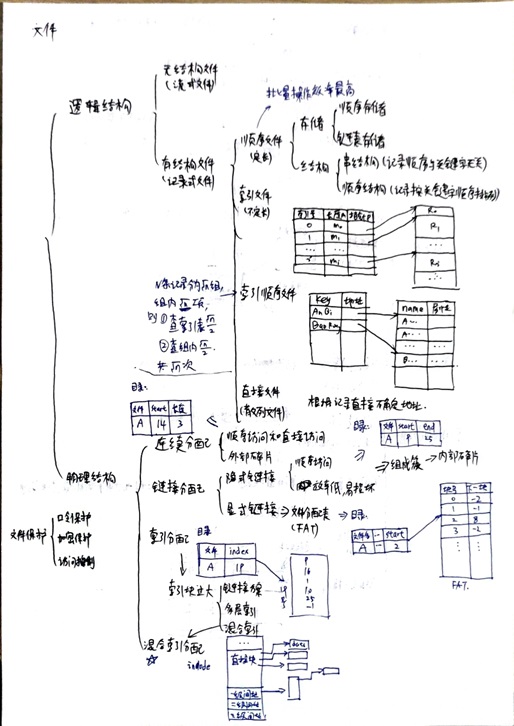 文件
逻辑结构
无结构文件
(流式文件)
有结构文件
(记录式文件)
批量操作效率最高
顺序文件
(定长)
存储
顺序存储
链表存储
结构
串结构(记录顺序与关键字无关)
顺序结构(记录按关键字顺序排列)
索引文件
(不定长)
索引号 长度m 指针P
0 m₀
1 m₁
...
R₀
R₁
...
N条记录分√n组,
组内√n项,
则①查索引表√n/2
②查组内√n/2
共√n次
索引顺序文件
Key 地址
An Qi
Bao Rong
name 属性
A...
A...
B...
直接文件
(散列文件)
根据记录直接确定地址.
物理结构
目录:
文件 start 长度
A 14 3
连续分配
顺序访问和直接访问
外部碎片
目录:
文件 start end
A 9 25
链接分配
隐式链接
顺序访问
效率低, 易损坏
⇒组成簇→内部碎片
显式链接⇒文件分配表⇒目录:
(FAT)
文件名 ... start
A ... 2
块号 下一块
0 -2
1 -1
2 8
3 -2
FAT.
文件保护
口令保护
加密保护
访问控制
索引分配
目录
文件 index
A 19
9
16
1
10
25
-1
19
索引块过大
链接方案
多层索引
混合索引
混合索引分配
☆
inode
...
直接块
data
一级间址
二级间址
三级间址